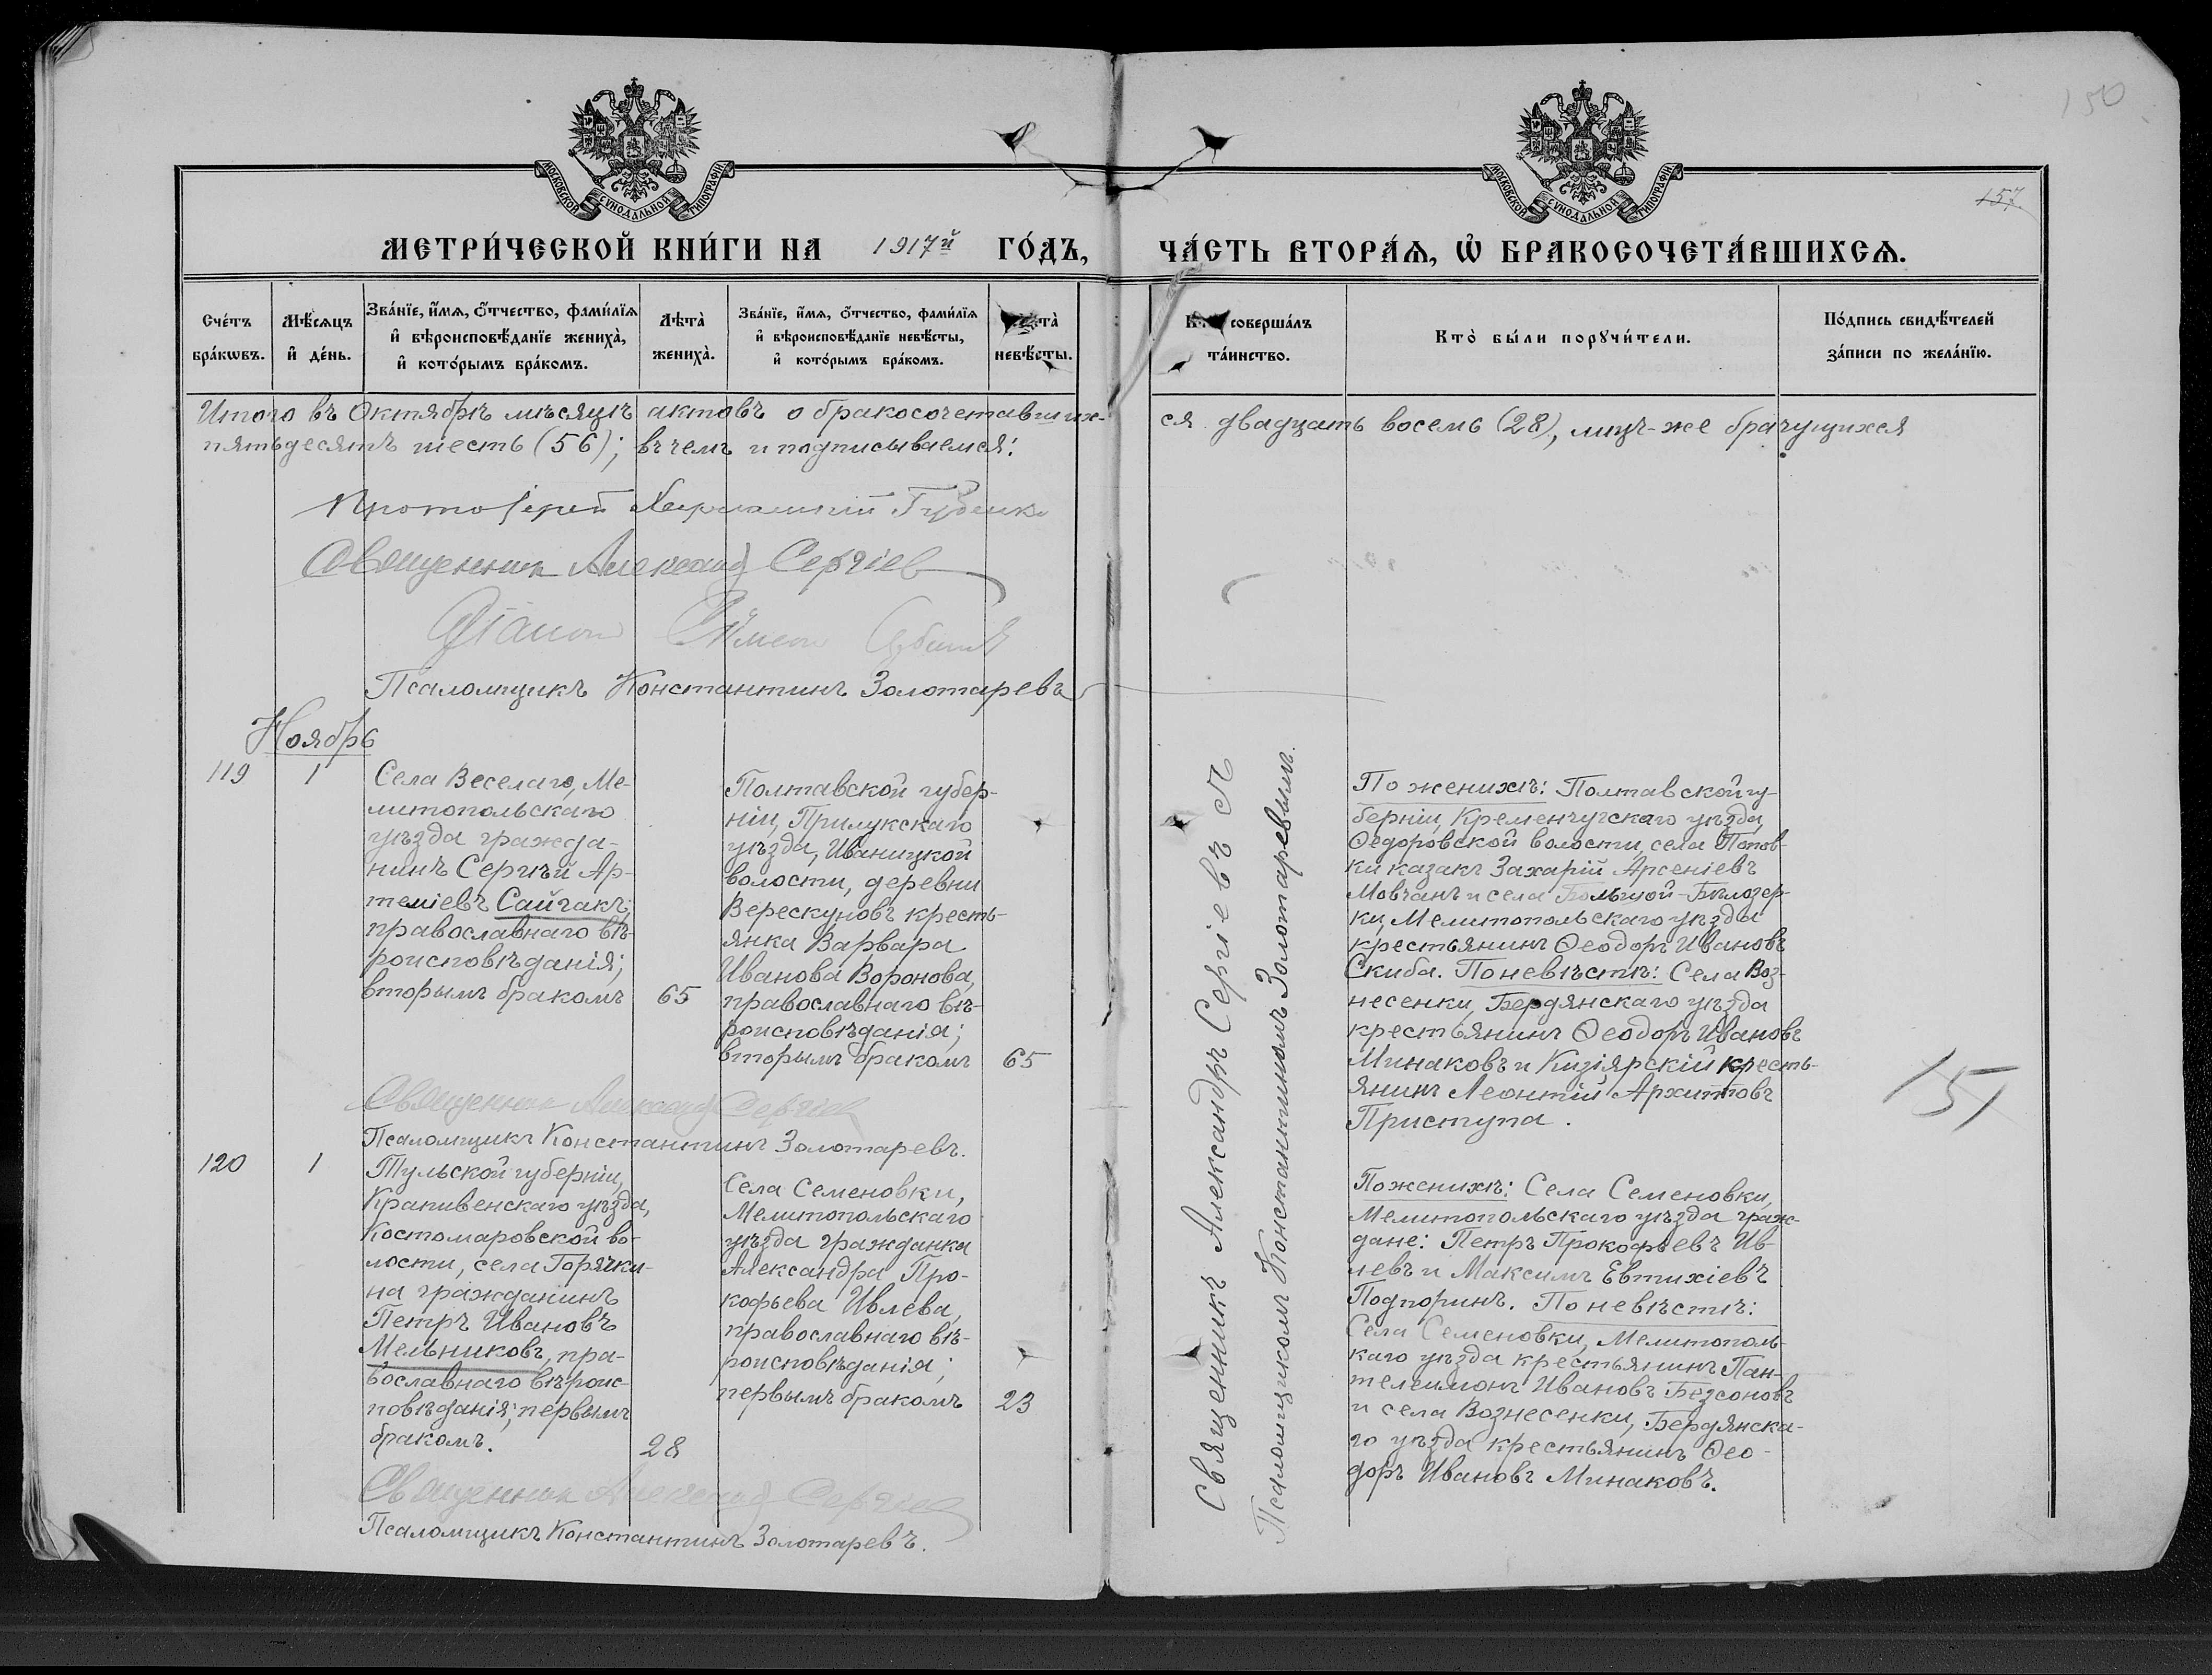 150
157.
МОСКОВСКОЙ СѴНОДАЛЬНОЙ ТИПОГРАФІИ
МОСКОВСКОЙ СѴНОДАЛЬНОЙ ТИПОГРАФІИ
МЕТРИ́ЧЕСКОЙ КНИ́ГИ НА 1917й ГО́ДЪ,
ЧА́СТЬ ВТОРА́Ѧ, Ѡ҆ БРАКОСОЧЕТА́ВШИХСѦ.
Сче́тъ
бра́кѡвъ.
Мѣ́сѧцъ
и҆ де́нь.
Зва́нїе, и҆́мѧ, ѻ҆́тчество, фами́лїѧ
и҆ вѣроисповѣ́данїе жениха̀,
и҆ кото́рымъ бра́комъ.
Лѣта̀
жениха̀.
Зва́нїе, и҆́мѧ, ѻ҆́тчество, фами́лїѧ
и҆ вѣроисповѣ́данїе невѣ́сты,
и҆ кото́рымъ бра́комъ.
невѣ́сты.
соверша́лъ
та́инство.
Кто̀ бы́ли порꙋчи́тели.
По́дпись свидѣ́телей
за́писи по жела́нїю.
Итого въ Октябрѣ мѣсяцѣ актовъ о бракосочетавших-
ся двадцать восемь (28), лицъ-же брачущихся
пятьдесятъ шесть (56); въ чемъ и подписываемся:
Протоіерей Харлампій Губенко
Священник Александ Сергіев
Діакон Симеон
Псаломщикъ Константинъ Золотаревъ
Ноябрь
119
1
Села Веселаго, Ме-
литопольскаго
уѣзда гражда-
нинъ Сергѣй Ар-
теміевъ Сайгакъ,
православнаго вѣ-
роисповѣданія;
вторымъ бракомъ
65
Полтавской губер-
ніи, Прилукскаго
уѣзда, Иваницкой
волости, деревни
Верескуновъ кресть-
янка Варвара
Иванова Воронова,
православнаго вѣ-
роисповѣданія;
вторымъ бракомъ
65
Священник Александ Сергіев
Псаломщикъ Константинъ Золотаревъ.
Священникъ Александръ Сергіевъ съ
Псаломщикомъ Константиномъ Золотаревымъ.
По женихѣ: Полтавской гу-
берніи, Кременчугскаго уѣзда,
Ѳедоровской волости, села Попов-
ки казакъ Захарій Арсеніевъ
Мовчанъ и села Большой-Бѣлозер-
ки, Мелитопольскаго уѣзда
крестьянинъ Ѳеодоръ Ивановъ
Скиба. По невѣстѣ: Села Воз-
несенки, Бердянскаго уѣзда
крестьянинъ Ѳеодоръ Ивановъ
Минаковъ и Кизіярскій кресть-
янинъ Леонтій Архиповъ
Приступа.
151
120
1
Тульской губерніи,
Крапивенскаго уѣзда,
Костомаровской во-
лости, села Горячки-
на гражданинъ
Петръ Ивановъ
Мельниковъ, пра-
вославнаго вѣроис-
повѣданія; первымъ
бракомъ.
28
Села Семеновки,
Мелитопольскаго
уѣзда гражданка
Александра Про-
кофьева Ивлева,
православнаго вѣ-
роисповѣданія;
первымъ бракомъ
23
По женихѣ: Села Семеновки,
Мелитопольскаго уѣзда граж-
дане: Петръ Прокофьевъ Ив-
левъ и Максимъ Евтихіевъ
Подпоринъ. По невѣстѣ:
Села Семеновки, Мелитополь-
каго уѣзда крестьянинъ Пан-
телеимонъ Ивановъ Безсоновъ
и села Вознесенки, Бердянска-
го уѣзда крестьянинъ Ѳео-
доръ Ивановъ Минаковъ.
Священник Александ Сергіев
Псаломщикъ Константинъ Золотаревъ.